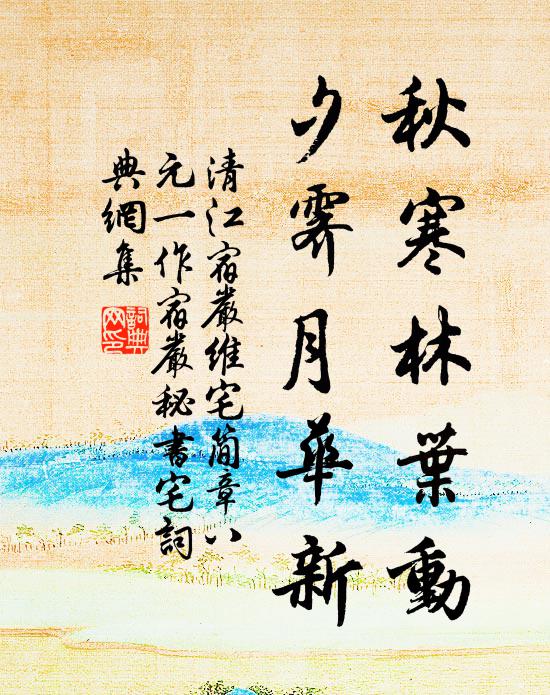 秋寒林葉動
夕霽月華新
清江宿嚴維宅簡章八
元一作宿嚴秘書宅詞
典網集
詞典
网印